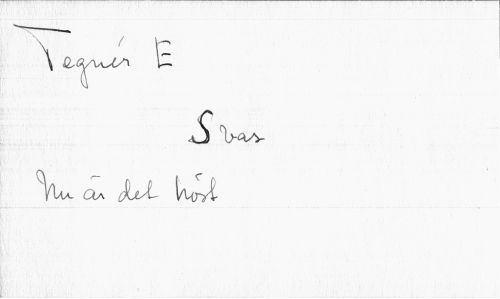 Tegnér E
Svas
Nu är det höst